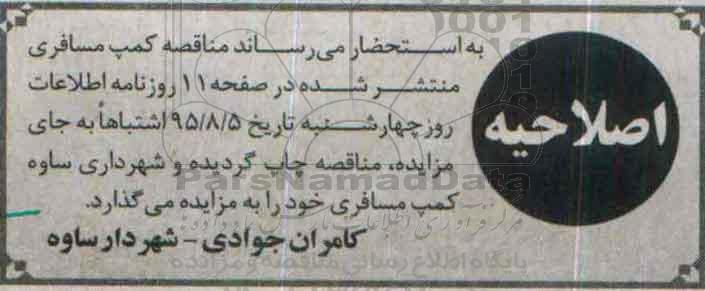 اصلاحیه
به استحضار می‌رساند مناقصه کمپ مسافری
منتشر شده در صفحه ۱۱ روزنامه اطلاعات
روز چهارشنبه تاریخ ۹۵/۸/۵ اشتباهاً به جای
مزایده، مناقصه چاپ گردیده و شهرداری ساوه
کمپ مسافری خود را به مزایده می گذارد.
کامران جوادی - شهردار ساوه
ParsNamadData
پایگاه اطلاع رسانی مناقصه و مزایده